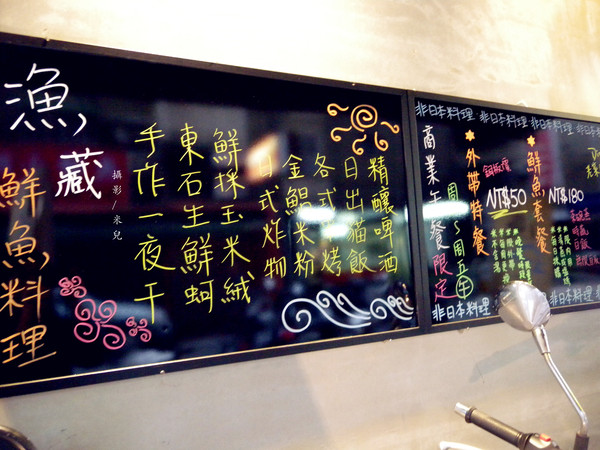 漁藏
鮮魚料理
攝影/米兒
手作一夜干
東石生鮮蚵
鮮採玉米絨
日式炸物
金鯧米粉
各式烤
日出貓飯
精釀啤酒
非日本料理 非日本料理 非日本料理 非日本料理
商業午餐限定
周～周五午
外帶特餐
銅板價
NT$50
鮮魚套餐
NT$180
非日本料理
非日本料理